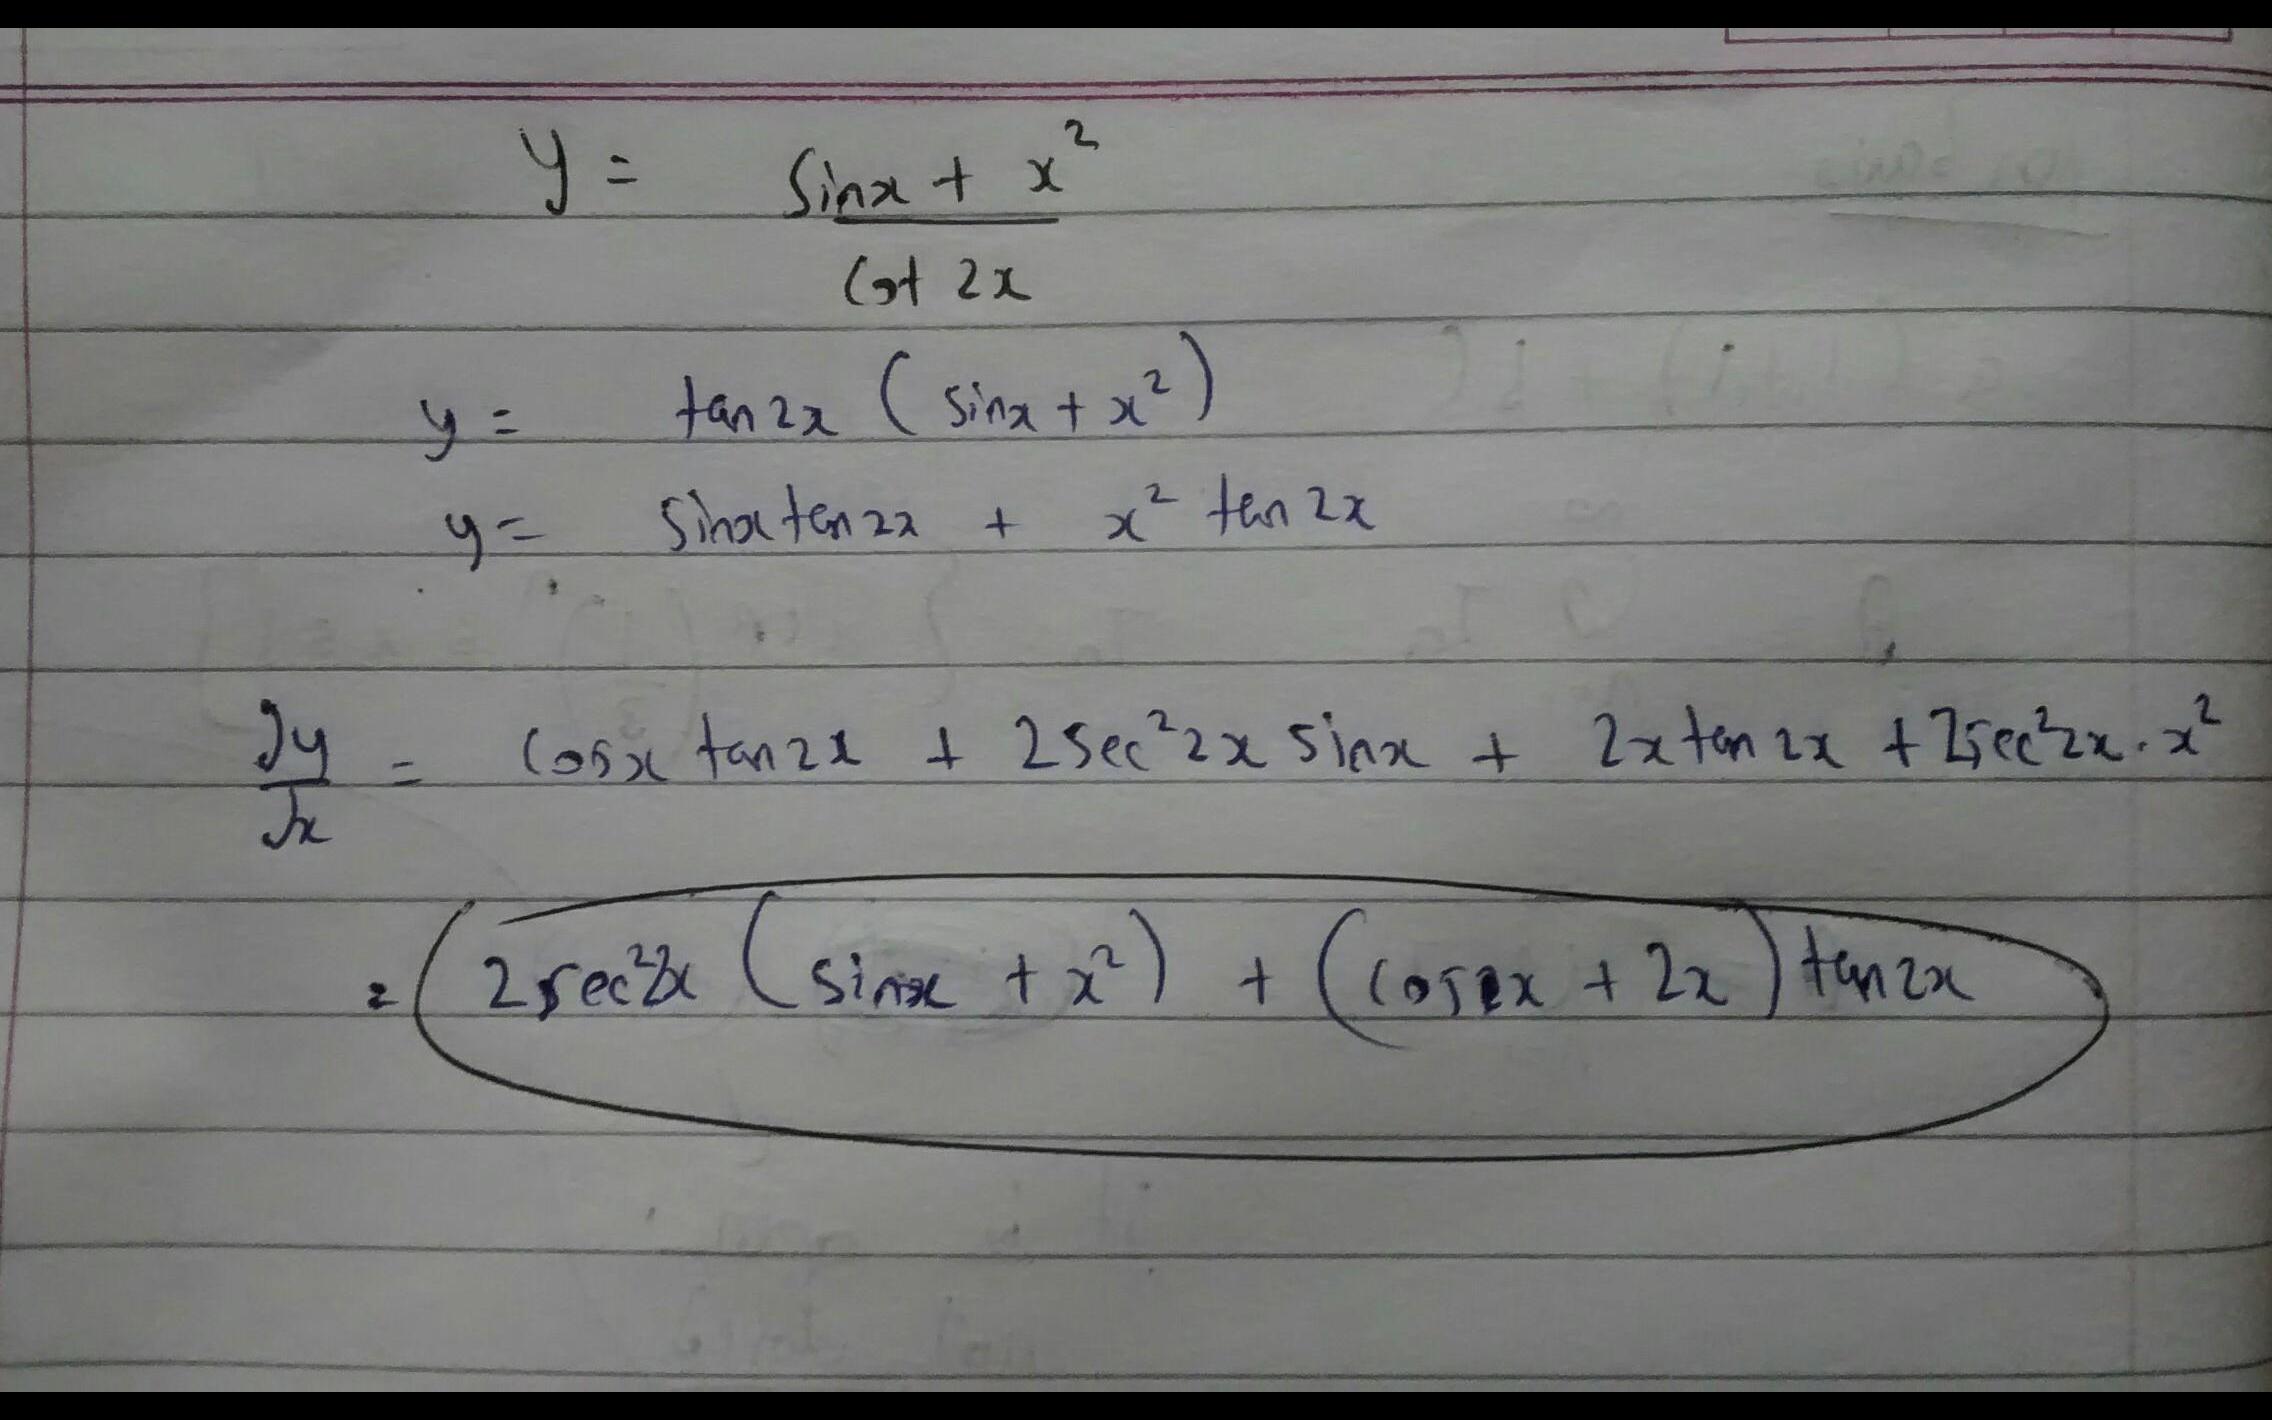 y = sinx + x²
cot 2x
y = tan2x (sinx + x²)
y = sinx tan2x + x² tan 2x
dy = cosx tan2x + 2sec²2x sinx + 2x tan 2x + 2sec²2x · x²
dx
= 2sec²2x (sinx + x²) + (cosx + 2x) tan2x